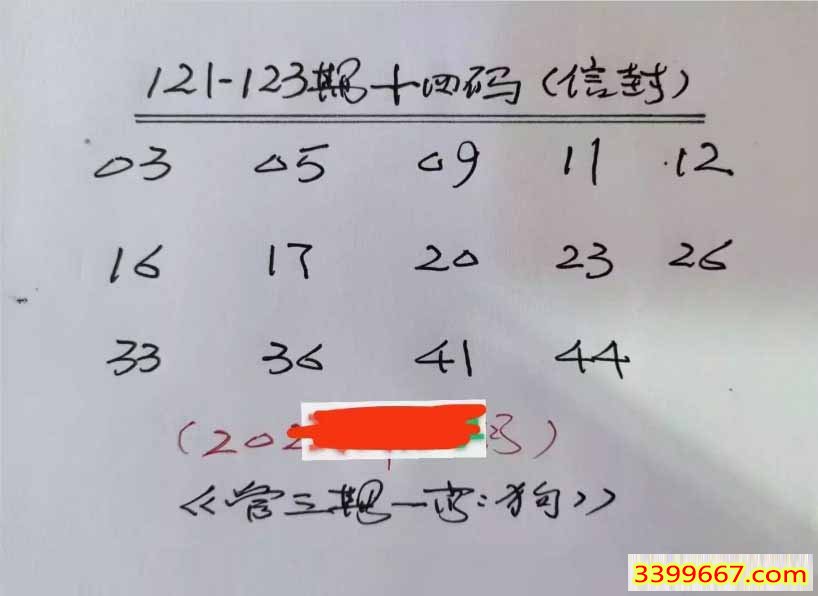 121-123期十四码（信封）
03 05 09 11 12
16 17 20 23 26
33 36 41 44
(202 码)
《管三期一肖:狗》
3399667.com